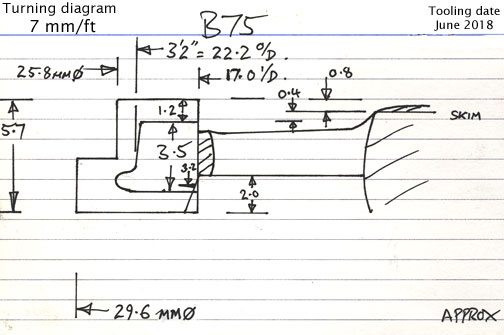 Turning diagram
7 mm/ft
B75
Tooling date
June 2018
3'2" = 22.2 O/D.
25.8 MM Ø
17.0 I/D.
0.8
0.4
1.2
SKIM
5.7
3.5
3.2
2.0
29.6 MM Ø
APPROX